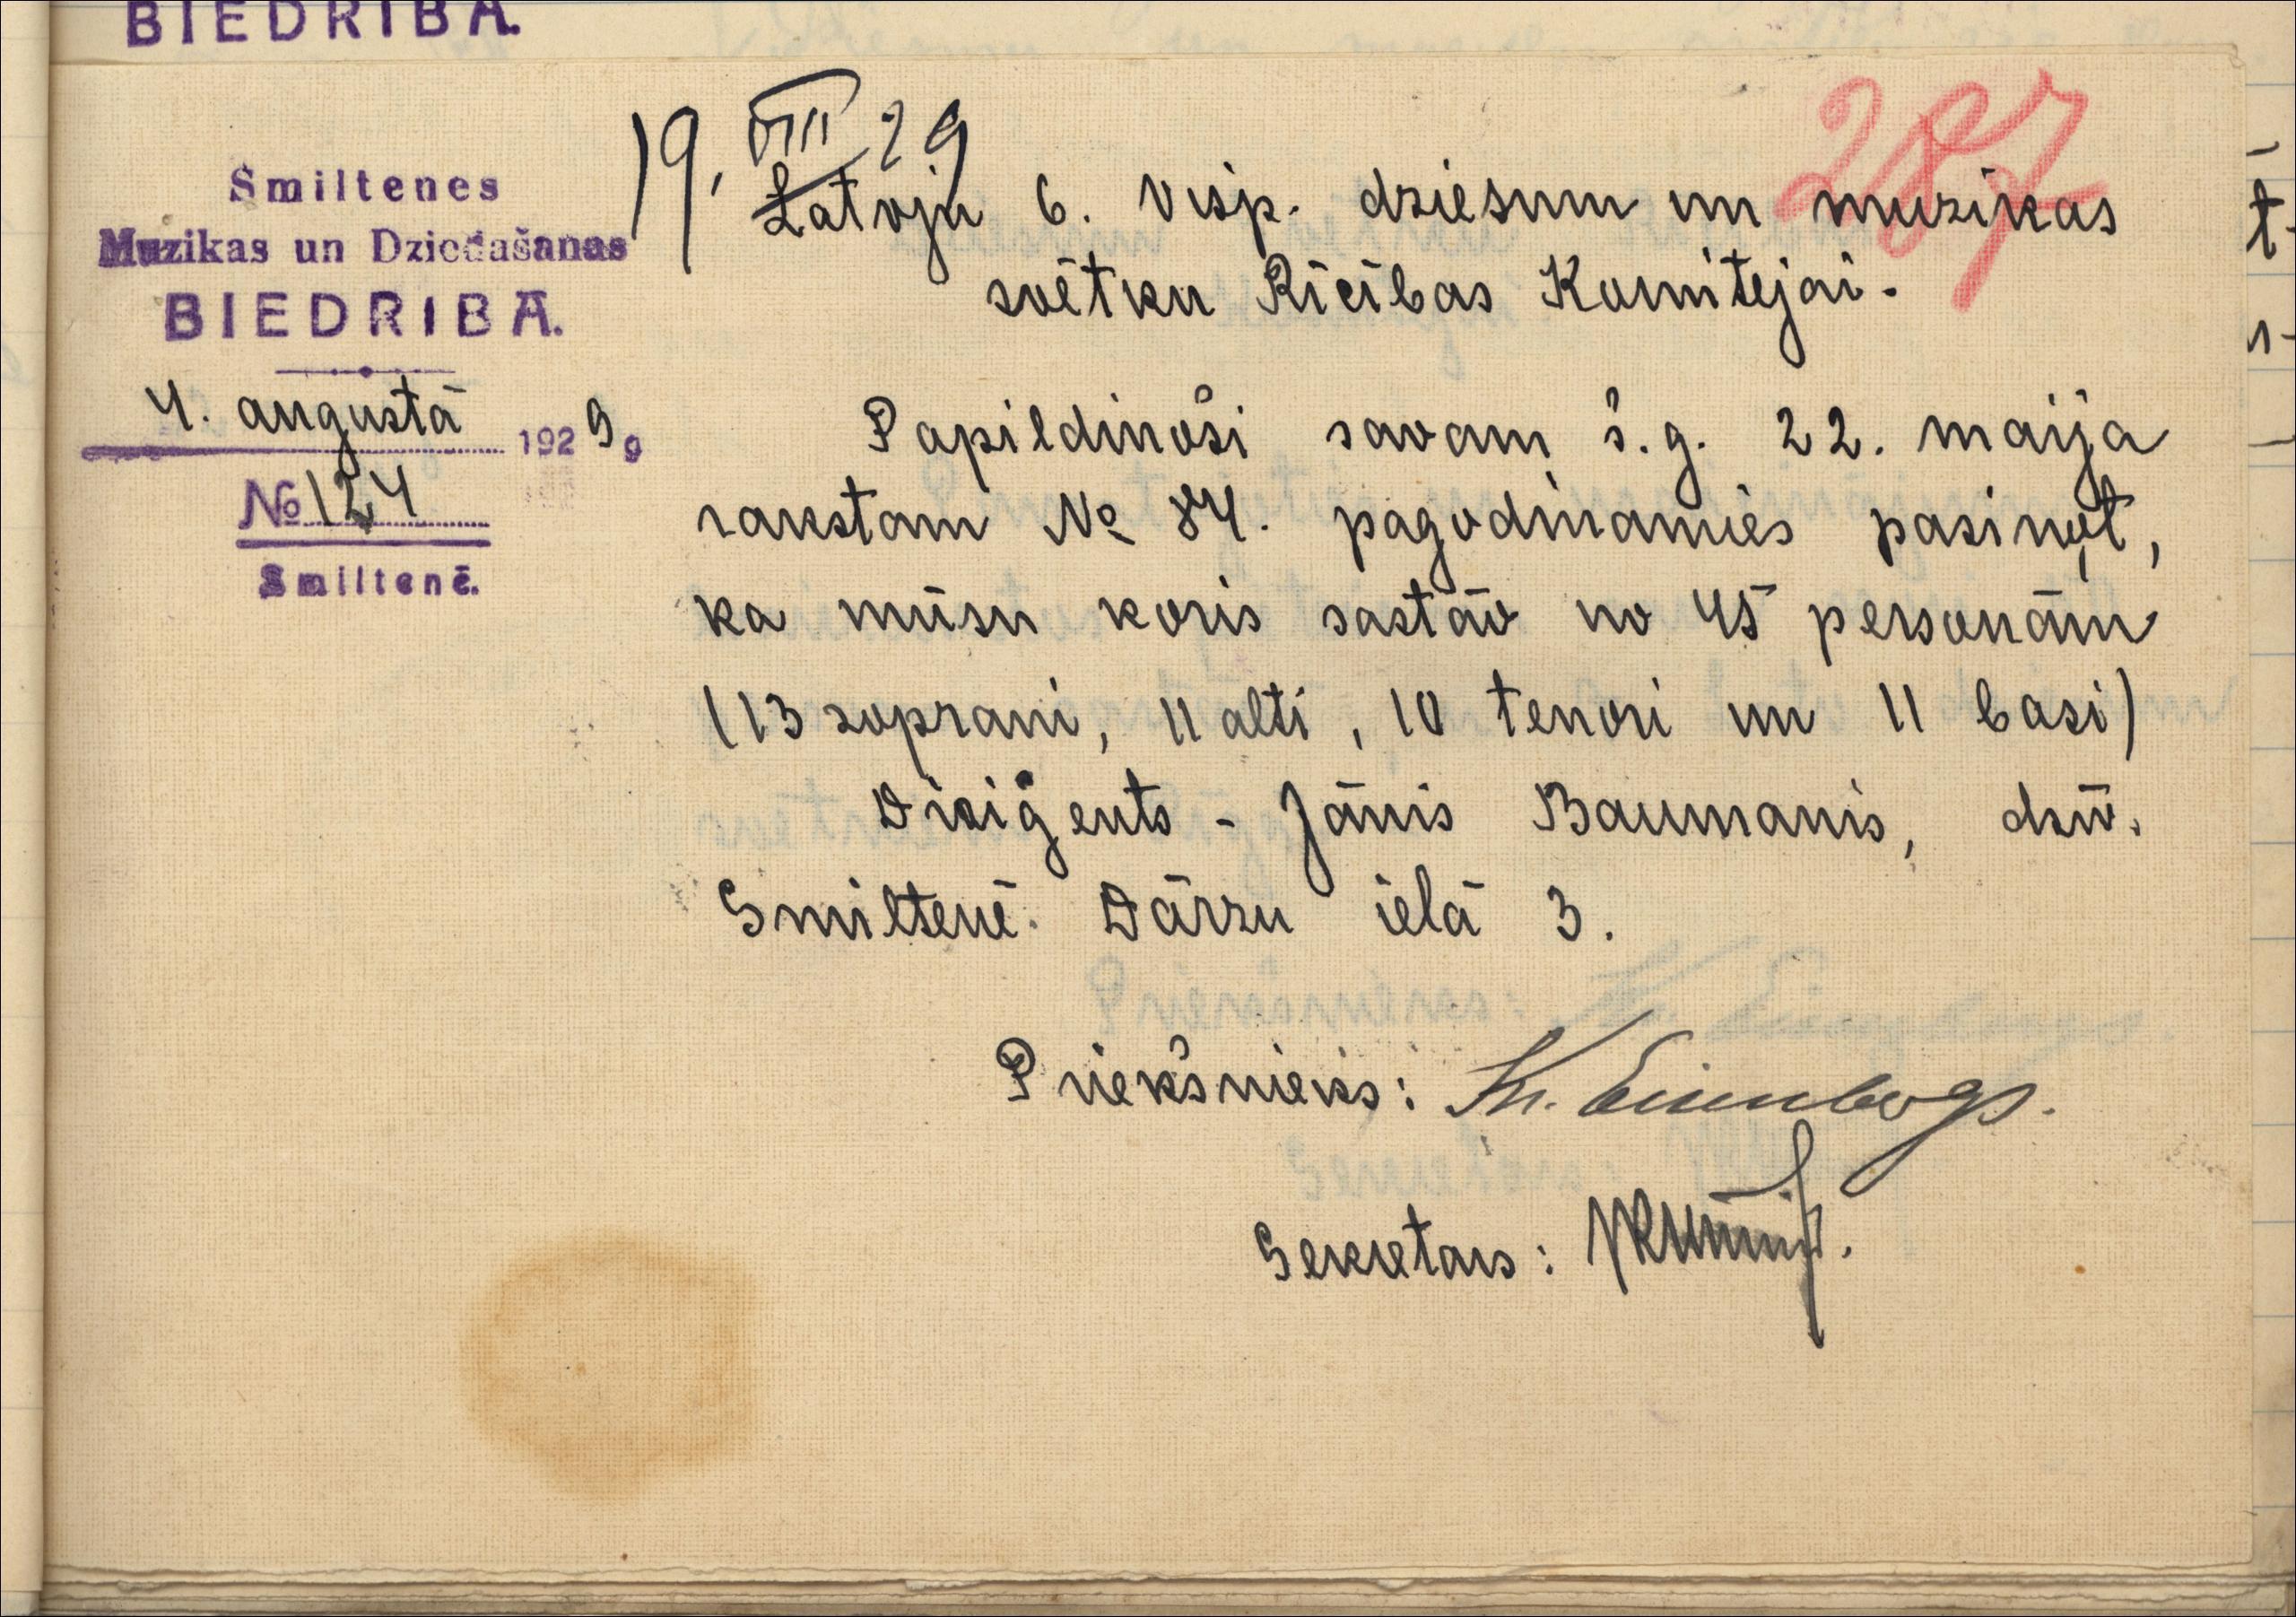 BIEDRIBA.
287
19. VIII 29
Smiltenes
Muzikas un Dziedašanas
BIEDRIBA.
4. augustā 1929 g
№ 124
Smiltenē.
Latvju 6. Visp. dziesmu un muzikas
svētku Rīcības Komitejai.
Papildinoši savam š.g. 22. maija
rakstam № 84. pagodinamies pasiņot,
ka mūsu koris sastāv no 45 personām
(13 soprani, 11 alti, 10 tenori un 11 basi)
Diriģents - Jānis Baumanis, dzīv.
Smiltenē. Dārzu ielā 3.
Priekšnieks:
Sekretars: